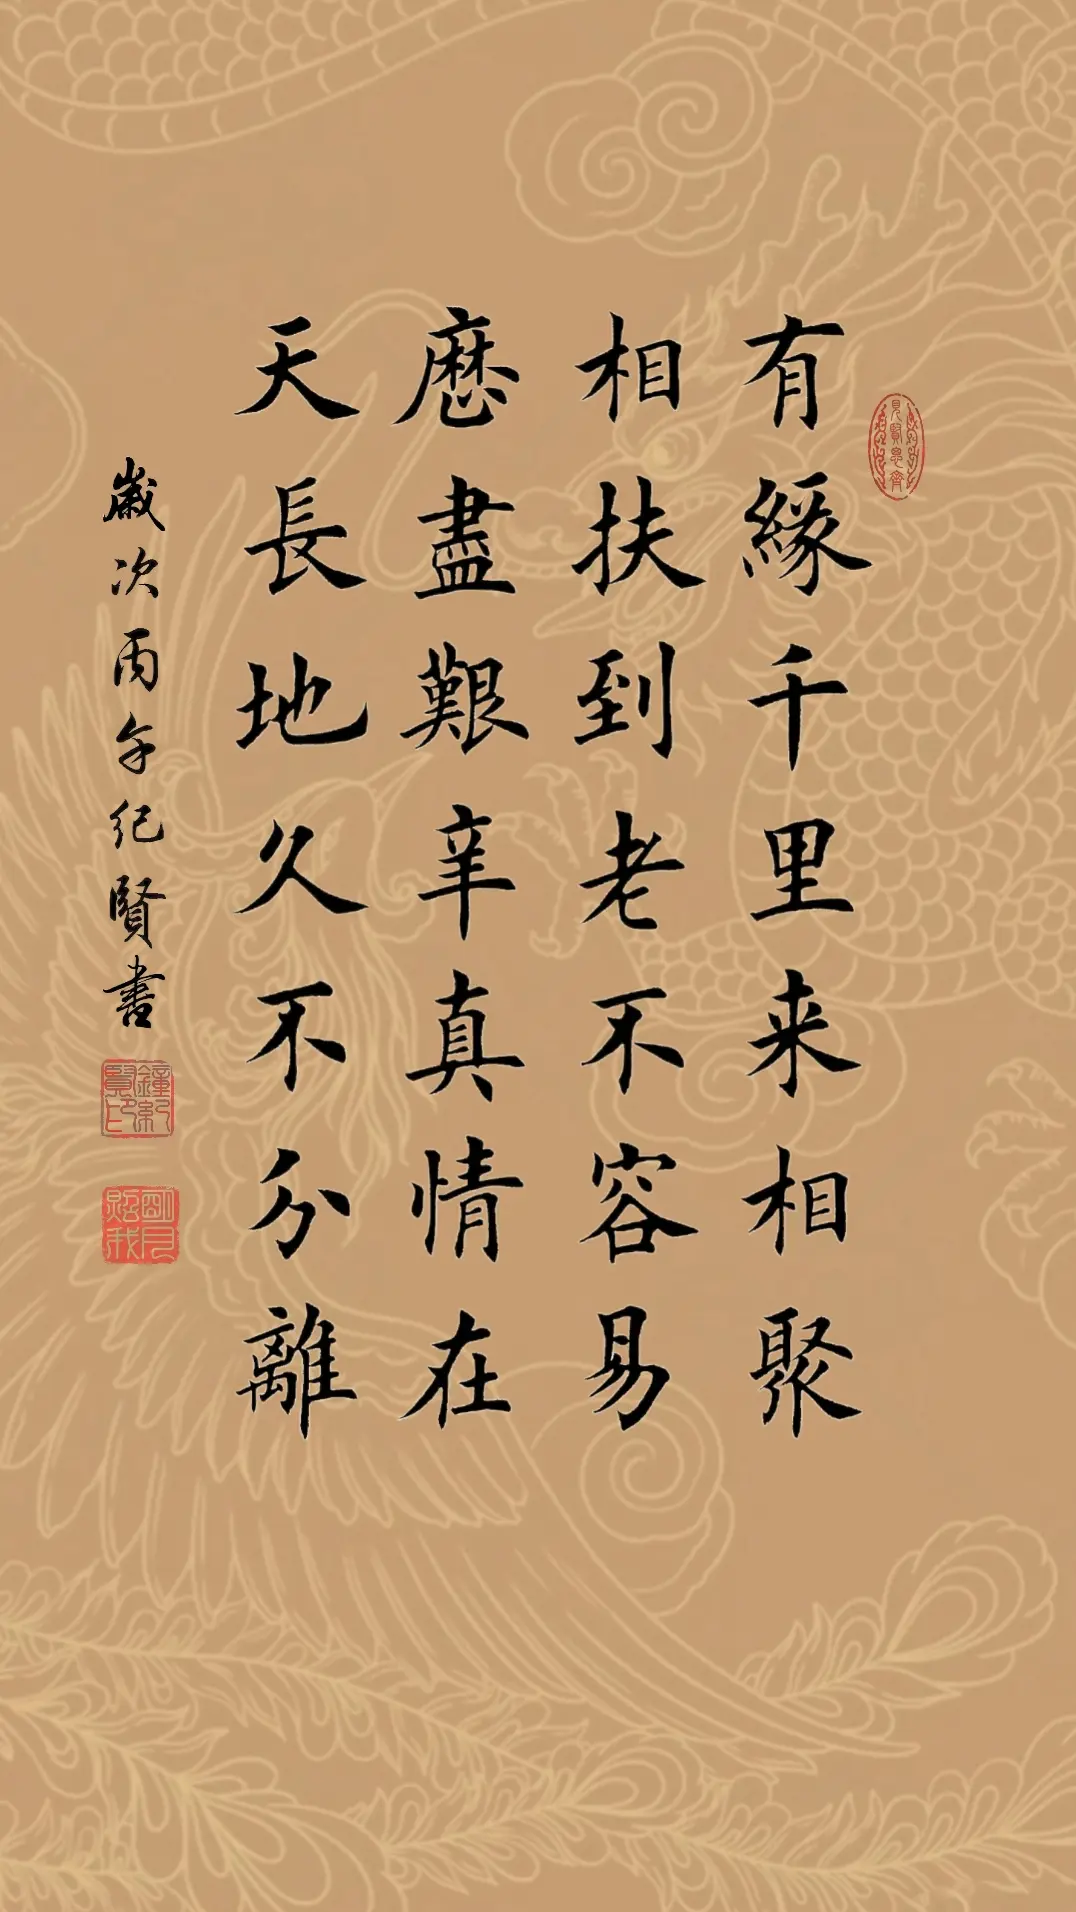 有緣千里来相聚
相扶到老不容易
歷盡艱辛真情在
天長地久不分離
歲次丙午纪賢書
見賢思齊
鐘紀賢印